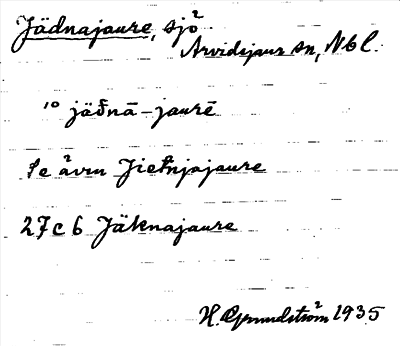 Jädnajaure, sjö
Arvidsjaur sn, Nbl.
10 jäđnā-jaurē
Se även Jietnjajaure
27c6 Jäknajaure
H. Grundström 1935